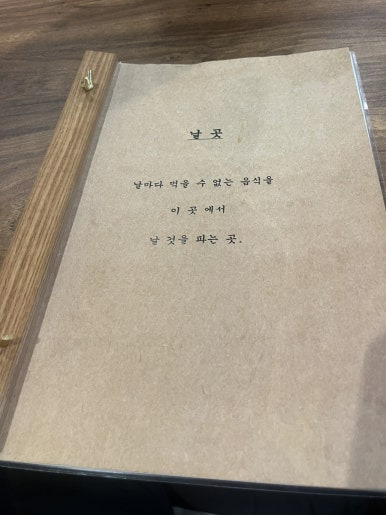 날 곳
날마다 먹을 수 없는 음식을
이 곳 에서
날 것을 파는 곳.